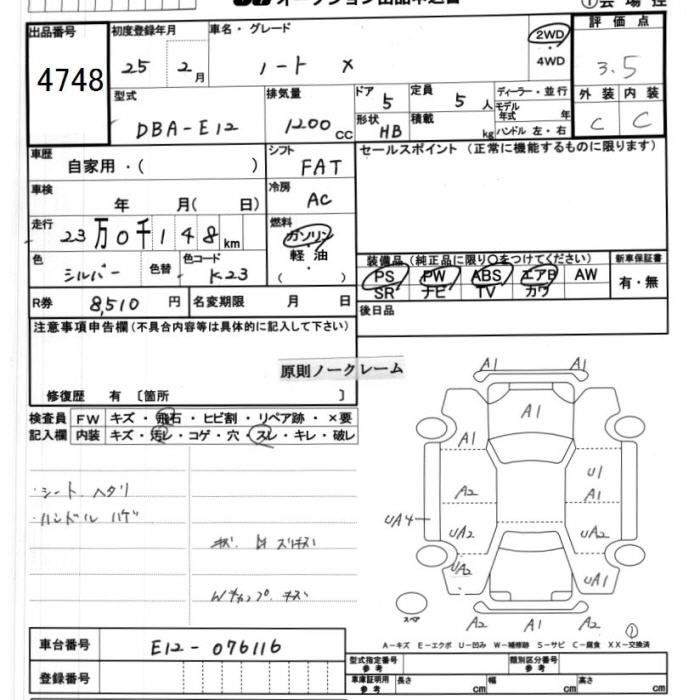 出品番号 初度登録年月 車名・グレード 評価点
4748 25 2月 ノート X 2WD ・ 4WD 3.5
型式 排気量 ドア 定員 ディーラー・並行 外装 内装
DBA-E12 1200cc 5 5人 モデル年式 年 C C
形状 HB 積載 kg ハンドル 左・右
車歴 シフト セールスポイント (正常に機能するものに限ります)
自家用・( ) FAT
車検 冷房
年 月( 日) AC
走行 燃料
23万0千148km ガソリン
軽油
・
( )
色 シルバー 色替 色コード K23
装備品 (純正品に限り○をつけてください) 新車保証書
PS PW ABS エアB AW 有・無
SR ナビ TV カワ
R券 8,510円 名変期限 月 日 後日品
注意事項申告欄(不具合内容等は具体的に記入して下さい)
原則ノークレーム
修復歴 有 〔箇所 〕
検査員 FW キズ・飛石・ヒビ割・リペア跡・×要
記入欄 内装 キズ・汚レ・コゲ・穴・スレ・キレ・破レ
・シート ヘタリ
・ハンドル ハゲ
A1 A1
A1
A1
U1
A1
A2
UA4
UA2 UA2
UA2 UA1
スペア A2 A1 A2
①
A-キズ E-エクボ U-凹み W-補修跡 S-サビ C-腐食 XX-交換済
車台番号 E12-076116
登録番号
型式指定番号 参考 類別区分番号 参考
車庫証明用 参考 長さ cm 幅 cm 高さ cm